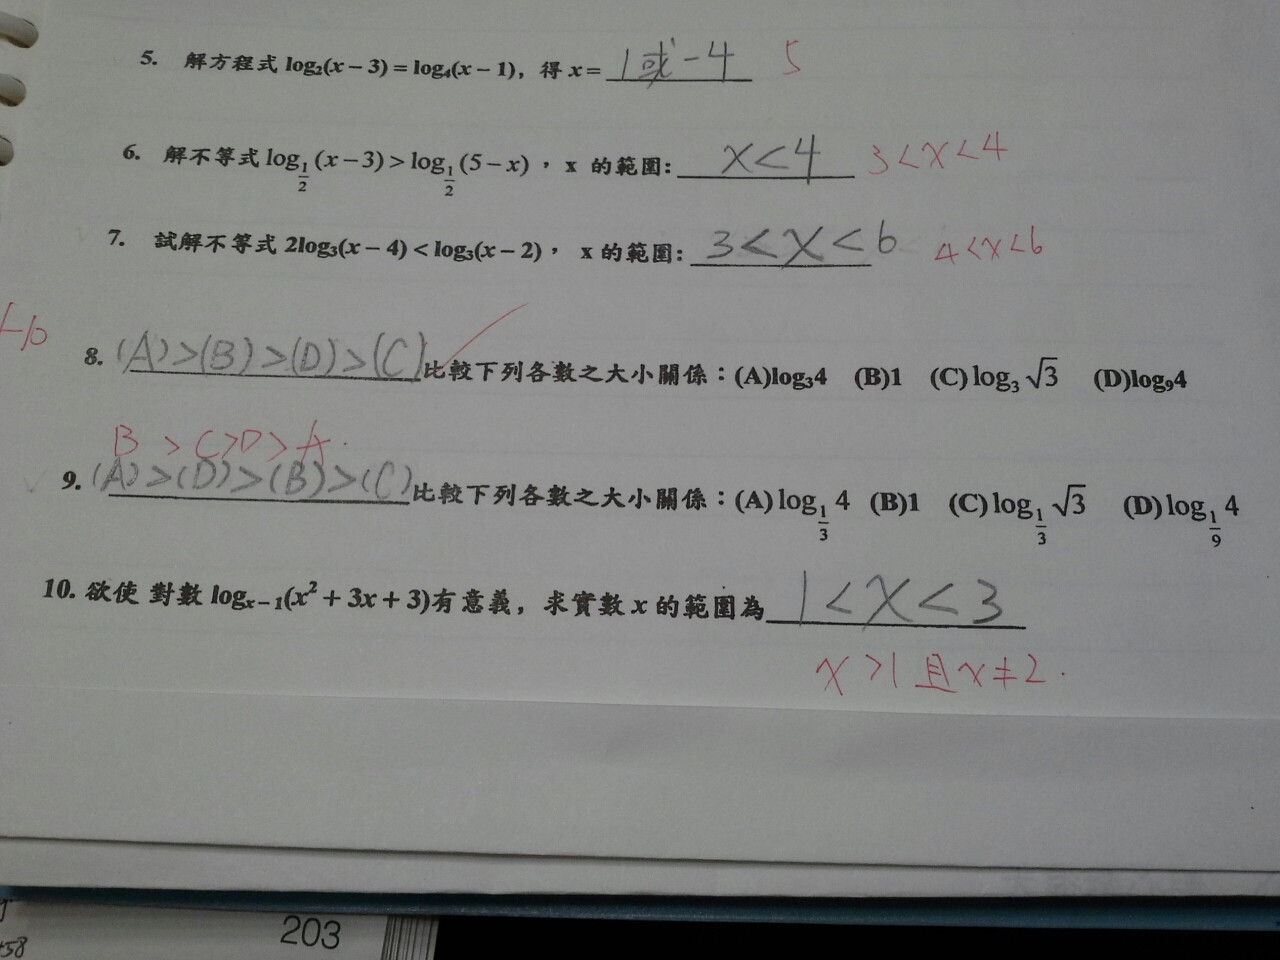 5. 解方程式 log₂(x − 3) = log₄(x − 1)，得 x = 1或 -4 5
6. 解不等式 log_{1/2} (x − 3) > log_{1/2} (5 − x)，x 的範圍: x<4 3<x<4
7. 試解不等式 2log₃(x − 4) < log₃(x − 2)， x 的範圍: 3<x<6 4<x<6
8. (A)>(B)>(D)>(C) 比較下列各數之大小關係：(A)log₃4 (B)1 (C) log₃ √3 (D)log₉4
B > C>D> A.
9. (A)>(D)>(B)>(C) 比較下列各數之大小關係：(A) log_{1/3} 4 (B)1 (C) log_{1/3} √3 (D) log_{1/9} 4
10. 欲使 對數 log_{x−1}(x² + 3x + 3)有意義，求實數 x 的範圍為 1<x<3
x>1 且 x≠2.
203